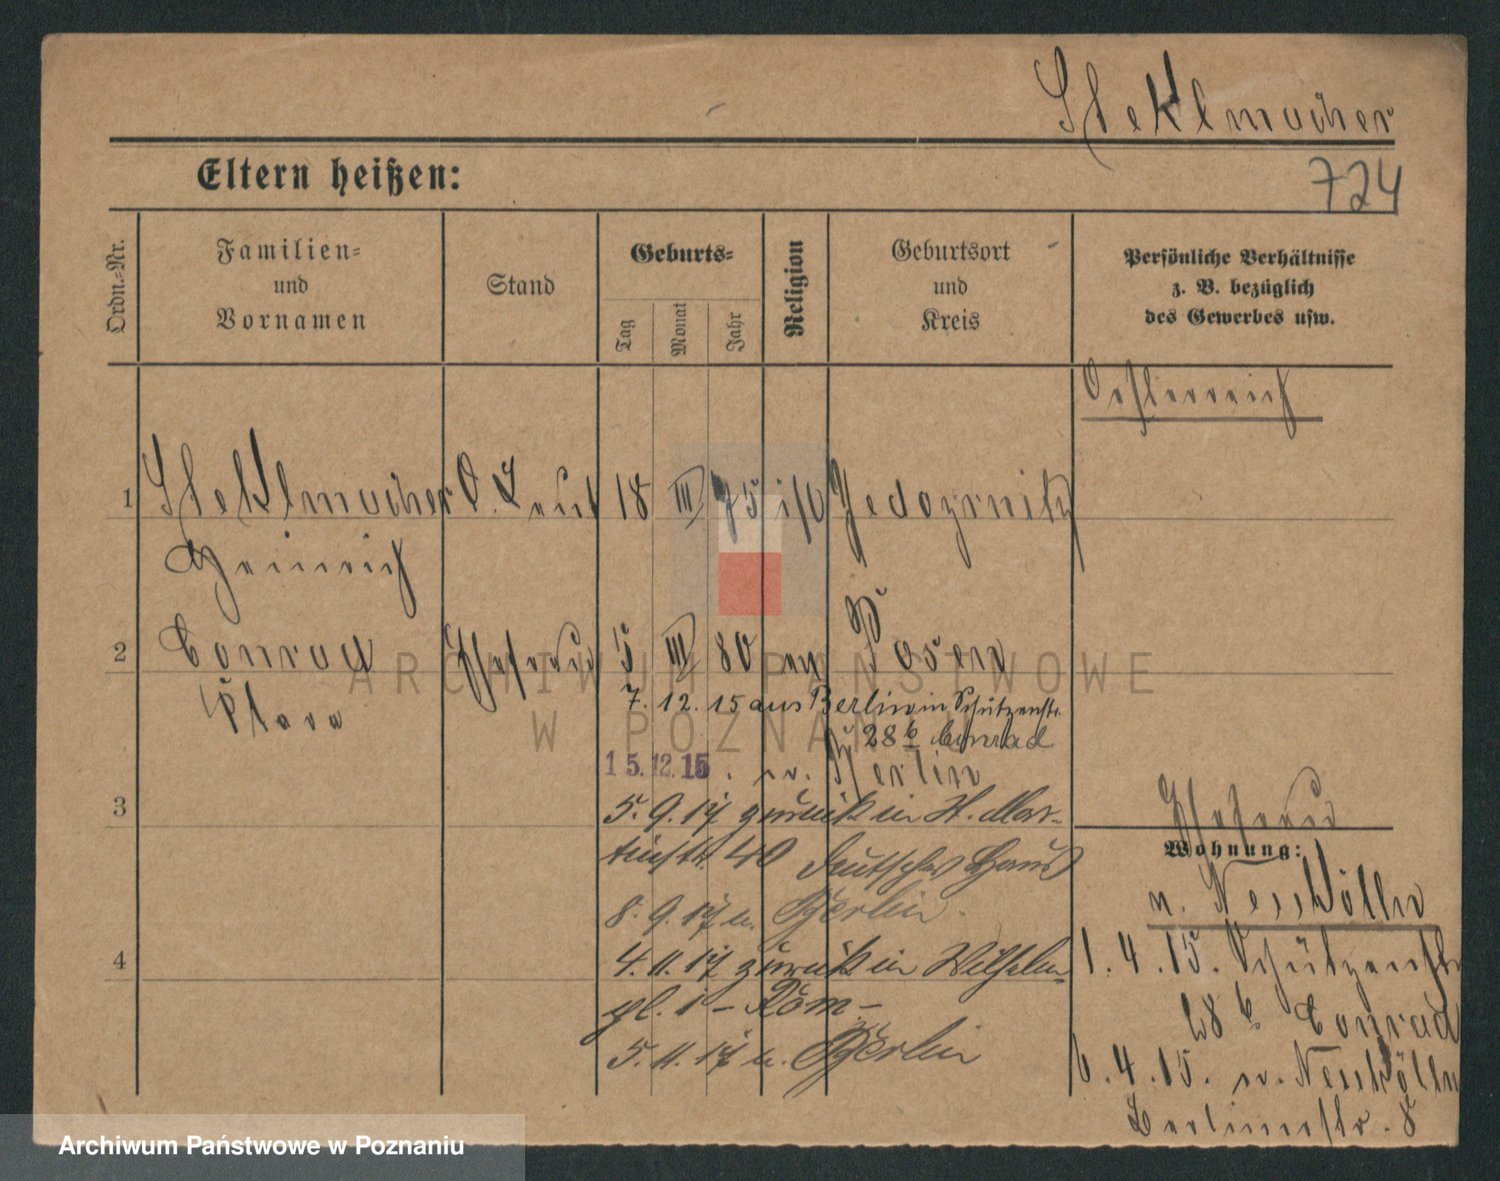 Steklmacher
Eltern heißen:
724
Ordn.-Nr.
Familien-
und
Vornamen
Stand
Geburts-
Tag
Monat
Jahr
Religion
Geburtsort
und
Kreis
Persönliche Verhältnisse
z. B. bezüglich
des Gewerbes usw.
Oesterreich
1 Steklmacher O. Leut 18 III 75
Heinrich
2 Conrad Ehefrau 5 III 80 Posen
Clara
7. 12. 15 aus Berlin in Schützenstr.
28 b Conrad
15.12.15. n. Berlin
3
5. 9. 17 zurück in St. Mar-
tinstr. 40 Deutsches Haus
8. 9. 17 n. Berlin.
4
4. 11. 17 zurück in Wilhelm
pl. 1 - Rom -
5. 11. 17 n. Berlin
Ehefrau
Wohnung:
n. Neukölln
1. 4. 15. Schützenstr
28 b Conrad
6. 4. 15. n. Neukölln
Berlinerstr. 8
ARCHIWUM PAŃSTWOWE
W POZNANIU
Archiwum Państwowe w Poznaniu